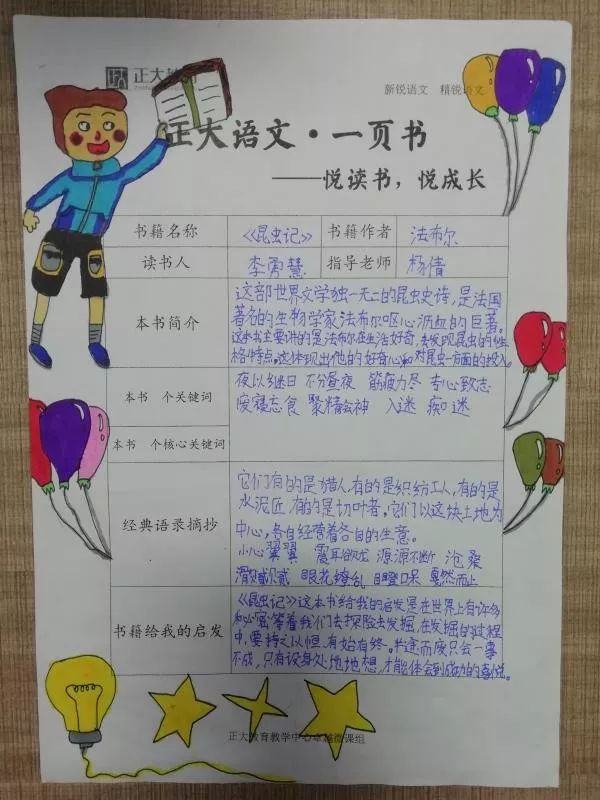 正大教
新锐语文 精锐语文
正大语文·一页书
——悦读书，悦成长
书籍名称 《昆虫记》 书籍作者 法布尔
读书人 李勇慧 指导老师 杨倩
本书简介
这部世界文学独一无二的昆虫史诗，是法国
著名的生物学家法布尔呕心沥血的巨著。
这本书主要讲的是法布尔在生活好奇，去发现昆虫的性
格特点。这体现出他的好奇心和对昆虫一方面的投入。
本书 个关键词
夜以继日 不分昼夜 筋疲力尽 专心致志
废寝忘食 聚精会神 入迷 痴迷
本书 个核心关键词
经典语录摘抄
它们有的是猎人，有的是织纺工人，有的是
水泥匠，有的是切叶者。它们以这块土地为
中心，各自经营着各自的生意。
小心翼翼 震耳欲龙 源源不断 沧桑
滑腻腻 眼花缭乱 目瞪口呆 戛然而止
书籍给我的启发
《昆虫记》这本书给我的启发是在世界上有许多
秘密等着我们去探险去发掘，在发掘的过程
中，要持之以恒，有始有终。半途而废只会一事
不成，只有设身处地地想，才能体会到成功的喜悦。
正大教育教学中心卓越微课组